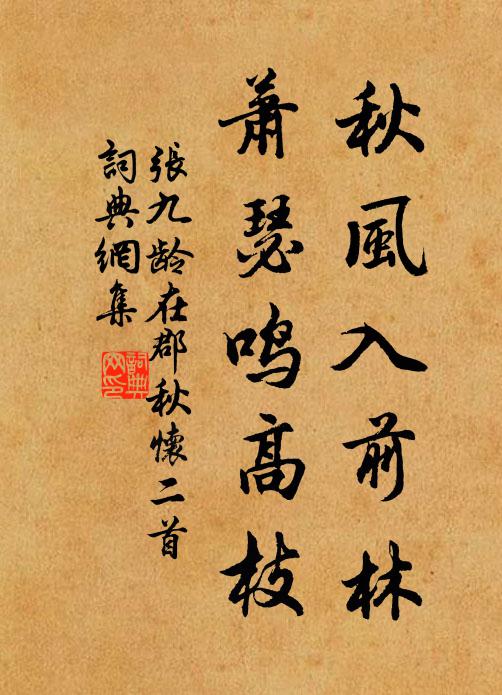 秋風入前林
蕭瑟鳴高枝
張九龄在郡秋懷二首
詞典網集
詞典
网印